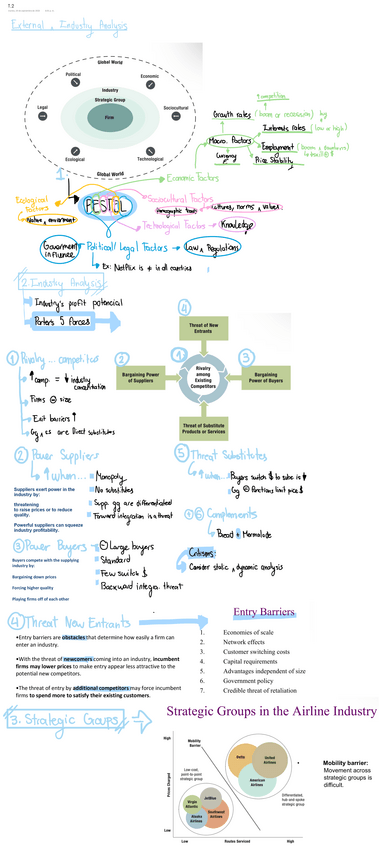 1.2
External & Industry Analysis
Global World
Political
Economic
Industry
Strategic Group
Legal
Firm
Sociocultural
Ecological
Technological
Global World
1.
Economic Factors
Macro Factors
Growth rates (boom or recession)
Interests rates (low or high)
Employment
Price Stability
Currency
Ecological Factors
PESTEL
Sociocultural Factors
Demographic trends
cultures, norms & values
Technological Factors
Knowledge
Government influence
Political/Legal Factors
Law & Regulations
Ex: Netflix is ≠ in all countries
2. Industry Analysis
Industry's profit potencial
Porter's 5 forces
4
Threat of New Entrants
1 Rivalry ... competitors
2
Bargaining Power of Suppliers
1
Rivalry among Existing Competitors
3
Bargaining Power of Buyers
Threat of Substitute Products or Services
↑ comp. = ↓ industry
Firms size
Exit barriers ↑
are Direct substitutes
2 Power Suppliers
↑ when...
Monopoly
No substitutes
Supp. gg are differentiated
Forward integration is a threat
Suppliers exert power in the industry by:
threatening to raise prices or to reduce quality.
Powerful suppliers can squeeze industry profitability.
5 Threat Substitutes
↑ when...
Buyers switch $ to subs is ↓
limit price $
6 Complements
Bread + Marmalade
Consider static & dynamic analysis
3 Power Buyers
Large buyers
Standard
Few switch $
Backward integra. threat
Buyers compete with the supplying industry by:
Bargaining down prices
Forcing higher quality
Playing firms off of each other
4 Threat New Entrants
•Entry barriers are obstacles that determine how easily a firm can enter an industry.
•With the threat of newcomers coming into an industry, incumbent firms may lower prices to make entry appear less attractive to the potential new competitors.
•The threat of entry by additional competitors may force incumbent firms to spend more to satisfy their existing customers.
Entry Barriers
1. Economies of scale
2. Network effects
3. Customer switching costs
4. Capital requirements
5. Advantages independent of size
6. Government policy
7. Credible threat of retaliation
3. Strategic Groups
Strategic Groups in the Airline Industry
High
Mobility Barrier
Delta
United Airlines
American Airlines
Low-cost, point-to-point strategic group
Differentiated, hub-and-spoke strategic group
JetBlue
Virgin Atlantic
Alaska Airlines
Southwest Airlines
Prices Charged
Low
Low
Routes Serviced
High
Mobility barrier: Movement across strategic groups is difficult.